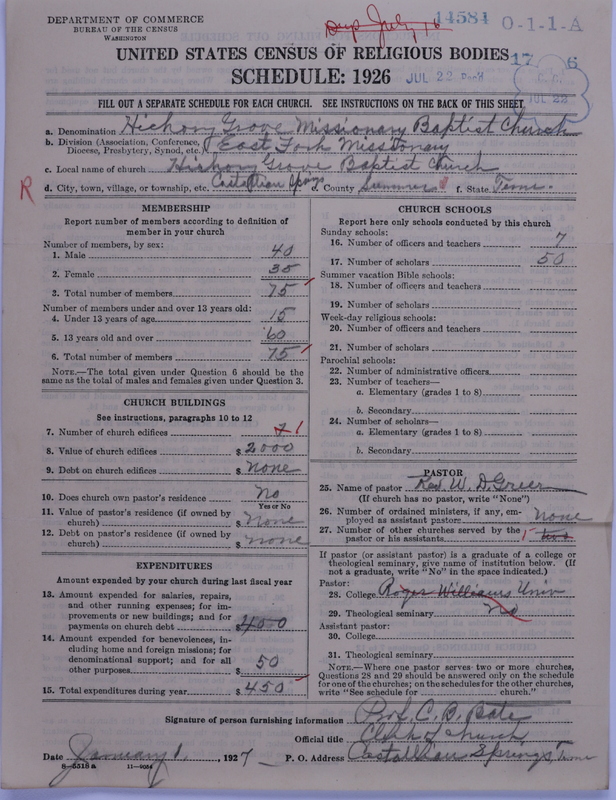 DEPARTMENT OF COMMERCE
BUREAU OF THE CENSUS
WASHINGTON
Dup July 16
14584
O-1-1-A
UNITED STATES CENSUS OF RELIGIOUS BODIES
SCHEDULE: 1926
JUL 22
JUL 22
FILL OUT A SEPARATE SCHEDULE FOR EACH CHURCH. SEE INSTRUCTIONS ON THE BACK OF THIS SHEET
a. Denomination Hickory Grove Missionary Baptist Church
b. Division (Association, Conference, Diocese, Presbytery, Synod, etc.) East Fork Missionary
c. Local name of church Hickory Grove Baptist Church
R
d. City, town, village, or township, etc. Castallian Springs e. County Sumner f. State Tenn.
MEMBERSHIP
Report number of members according to definition of
member in your church
Number of members, by sex:
1. Male 40
2. Female 35
3. Total number of members 75
Number of members under and over 13 years old:
4. Under 13 years of age 15
5. 13 years old and over 60
6. Total number of members 75
NOTE.—The total given under Question 6 should be
same as the total of males and females given under Question 3.
CHURCH BUILDINGS
See instructions, paragraphs 10 to 12
7. Number of church edifices 1
8. Value of church edifices $ 2000
9. Debt on church edifices $ None
10. Does church own pastor's residence No
Yes or No
11. Value of pastor's residence (if owned by
church) $ None
12. Debt on pastor's residence (if owned by
church) $ None
EXPENDITURES
Amount expended by your church during last fiscal year
13. Amount expended for salaries, repairs,
and other running expenses; for im-
provements or new buildings; and for
payments on church debt $ 400
14. Amount expended for benevolences, in-
cluding home and foreign missions; for
denominational support; and for all
other purposes $ 50
15. Total expenditures during year $ 450
CHURCH SCHOOLS
Report here only schools conducted by this church
Sunday schools:
16. Number of officers and teachers 7
17. Number of scholars 50
Summer vacation Bible schools:
18. Number of officers and teachers
19. Number of scholars
Week-day religious schools:
20. Number of officers and teachers
21. Number of scholars
Parochial schools:
22. Number of administrative officers
23. Number of teachers—
a. Elementary (grades 1 to 8)
b. Secondary
24. Number of scholars—
a. Elementary (grades 1 to 8)
b. Secondary
PASTOR
25. Name of pastor Rev. W. D. Grier
(If church has no pastor, write "None")
26. Number of ordained ministers, if any, em-
ployed as assistant pastors None
27. Number of other churches served by the
pastor or his assistants 1 two
If pastor (or assistant pastor) is a graduate of a college or
theological seminary, give name of institution below. (If
not a graduate, write "No" in the space indicated.)
Pastor:
28. College Roger Williams Univ
29. Theological seminary No
Assistant pastor:
30. College
31. Theological seminary
NOTE.—Where one pastor serves two or more churches,
Questions 28 and 29 should be answered only on the schedule
for one of the churches; on the schedules for the other churches,
write "See schedule for church."
Signature of person furnishing information Prof. C. B. Bate
Official title Clerk of Church
Date January 1, 1927 P. O. Address Castallian Springs, Tenn
8—5518 a 11—9054